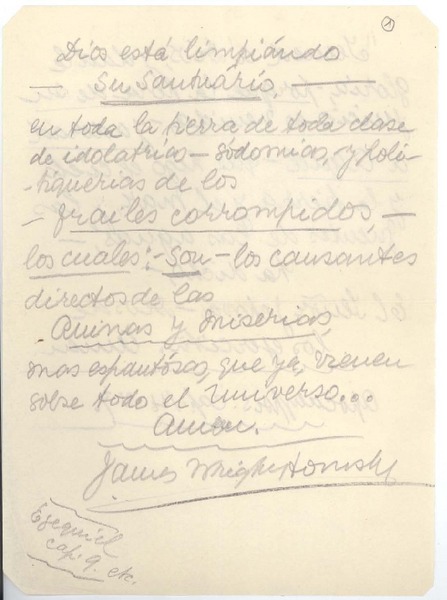 1
Dios está limpiándo
— Su Santuário, —
en toda la tierra de toda clase
de idolatrias — sodomias, y poli-
-tiquerias de los
— frailes corrompidos, —
los cuales: - Son - los causantes
directos de las
Ruinas y Miserias,
mas espantósas, que ya, vienen
sobre todo el Universo...
Amen.
James
Ezequiel
cap. 9. etc.